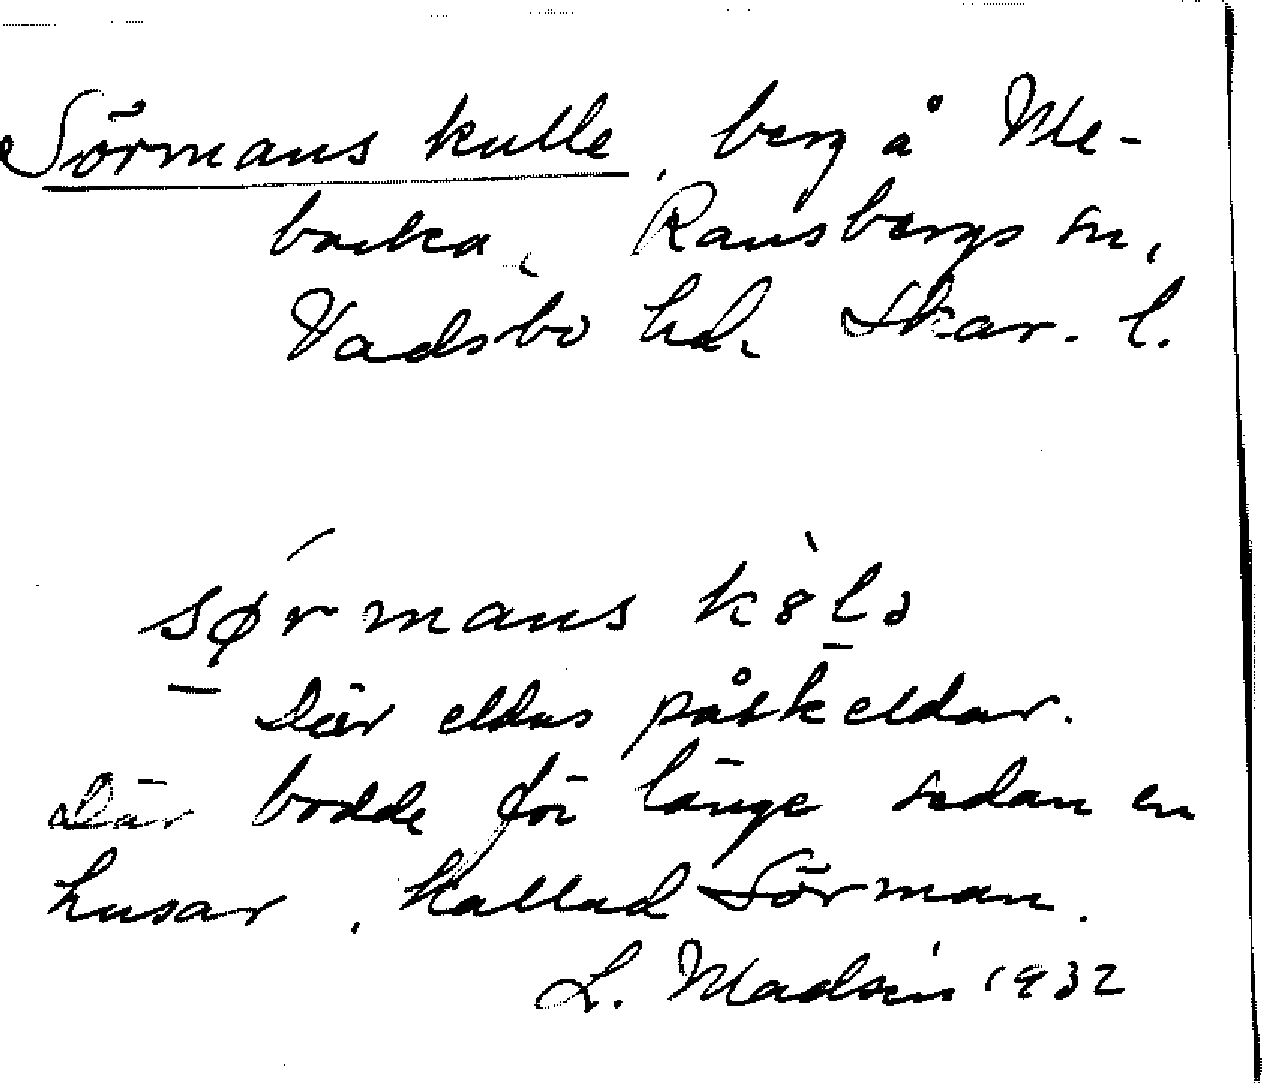 Sörmans kulle, berg å Me-
backa, Ransbergs sn,
Vadsbo hd, Skar. l.
sørmans k8lə
Där eldas påskeldar.
Där bodde för länge sedan en
husar, kallad Sörman.
L. Madsén 1932